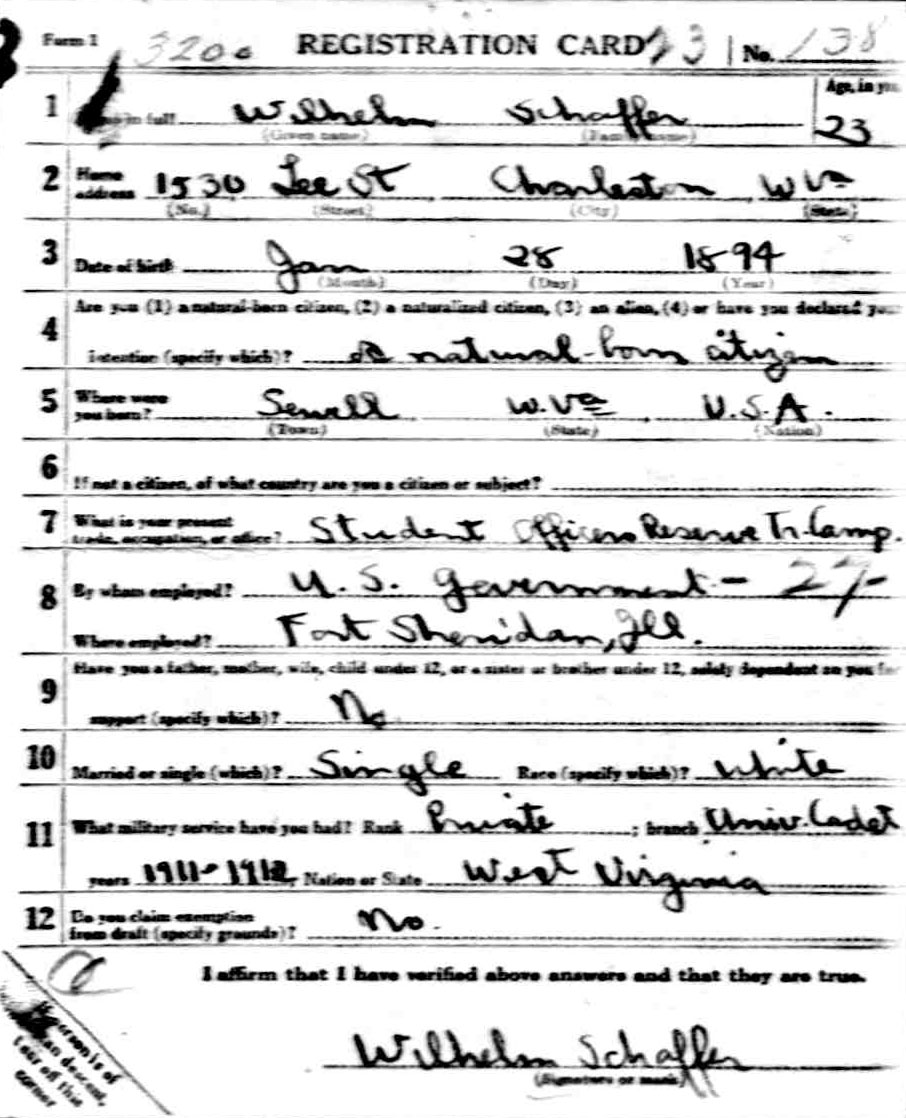 Form 1 3200 REGISTRATION CARD 23 | No. 138
1 in full Wilhelm Schaffer Age, in yrs
(Given name) (Family name) 23
2 Home address 1530 Lee St Charleston W Va
(No.) (Street) (City) (State)
3 Date of birth Jan 28 1894
(Month) (Day) (Year)
4 Are you (1) a natural-born citizen, (2) a naturalized citizen, (3) an alien, (4) or have you declared your
intention (specify which)? natural-born citizen
5 Where were you born? Sewell W. Va U.S.A.
(Town) (State) (Nation)
6 If not a citizen, of what country are you a citizen or subject?
7 What is your present trade, occupation, or office? Student Officers Reserve Tr. Camp.
8 By whom employed? U. S. Government - 27-
Where employed? Fort Sheridan, Ill.
9 Have you a father, mother, wife, child under 12, or a sister or brother under 12, solely dependent on you for
support (specify which)? No
10 Married or single (which)? Single Race (specify which)? White
11 What military service have you had? Rank Private ; branch Univ. Cadet
years 1911-1912, Nation or State West Virginia
12 Do you claim exemption from draft (specify grounds)? No.
I affirm that I have verified above answers and that they are true.
Wilhelm Schaffer
(Signature or mark)
If person is of
African descent,
tear off this
corner